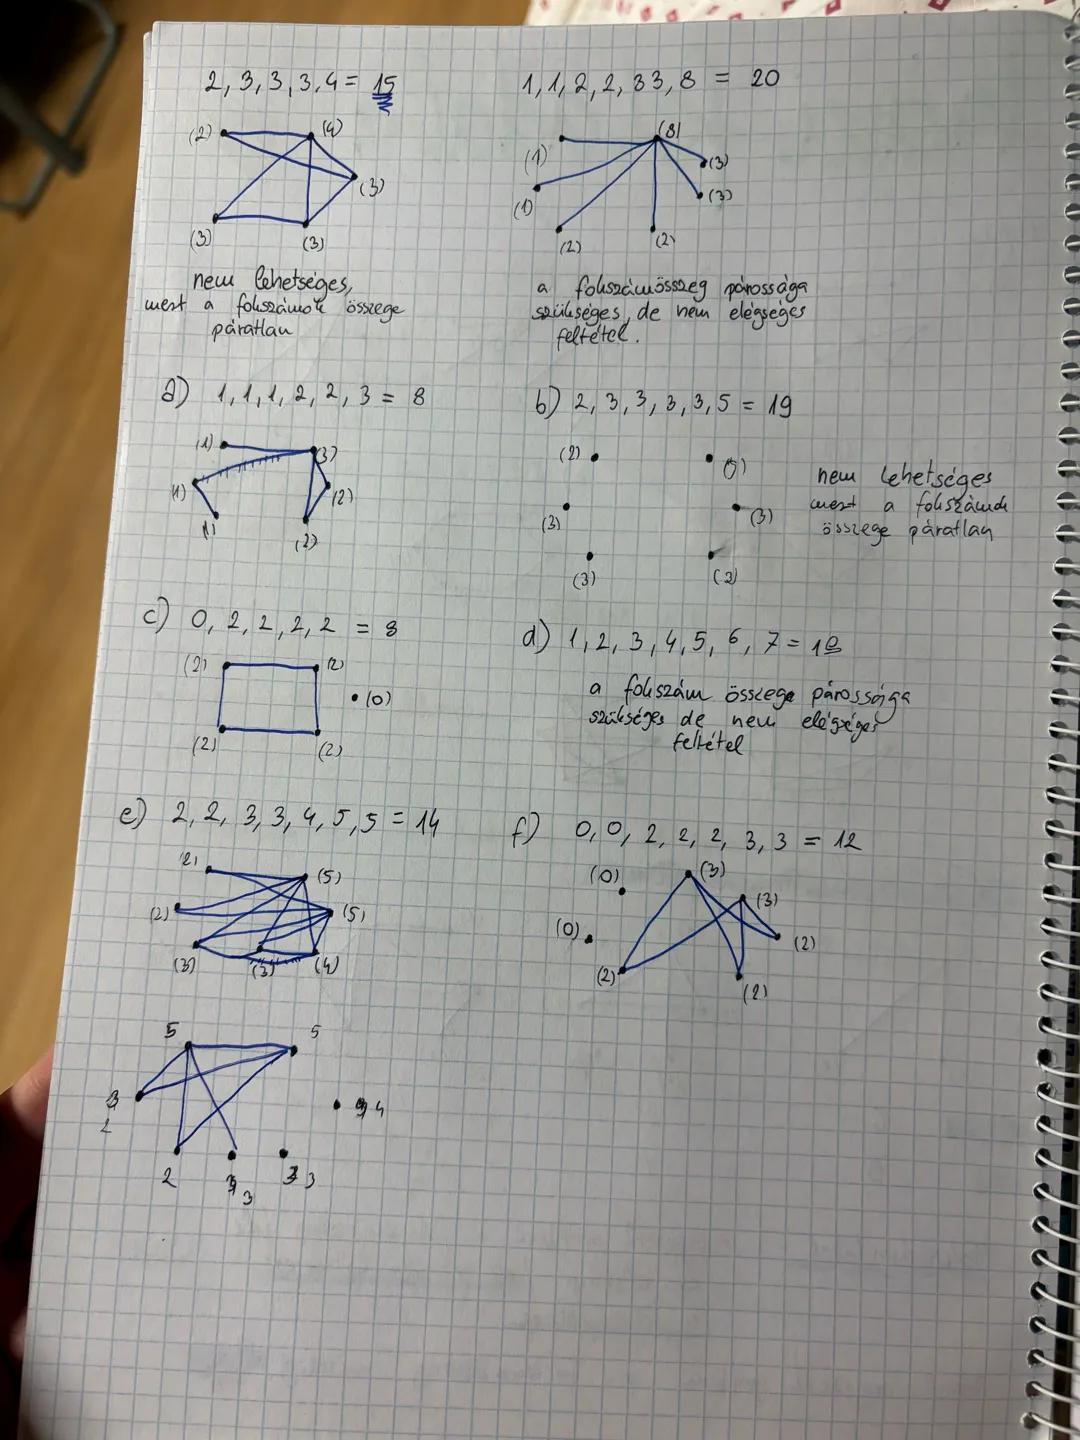 2, 3, 3, 3, 4 = 15
(2)
(4)
(3)
(3)
(3)
nem lehetséges,
mert a fokszámok összege
páratlan
1, 1, 2, 2, 3 3, 8 = 20
(1)
(8)
(3)
(3)
(1)
(2)
(2)
a fokszámösszeg párossága
szükséges, de nem elégséges
feltétel.
a) 1, 1, 1, 2, 2, 3 = 8
(1)
(3)
(1)
(2)
(1)
(2)
b) 2, 3, 3, 3, 3, 5 = 19
(2)
(5)
(3)
(3)
(3)
nem lehetséges
mert a fokszámok
összege páratlan
c) 0, 2, 2, 2, 2 = 8
(2)
(2)
(0)
(2)
(2)
d) 1, 2, 3, 4, 5, 6, 7 =
a fokszám összege párossága
szükséges de nem elégséges
feltétel
e) 2, 2, 3, 3, 4, 5, 5 = 14
(2)
(5)
(2)
(5)
(3)
(3)
(4)
f) 0, 0, 2, 2, 2, 3, 3 = 12
(0)
(3)
(3)
(0)
(2)
(2)
(2)
5
5
2
4
2
3
3